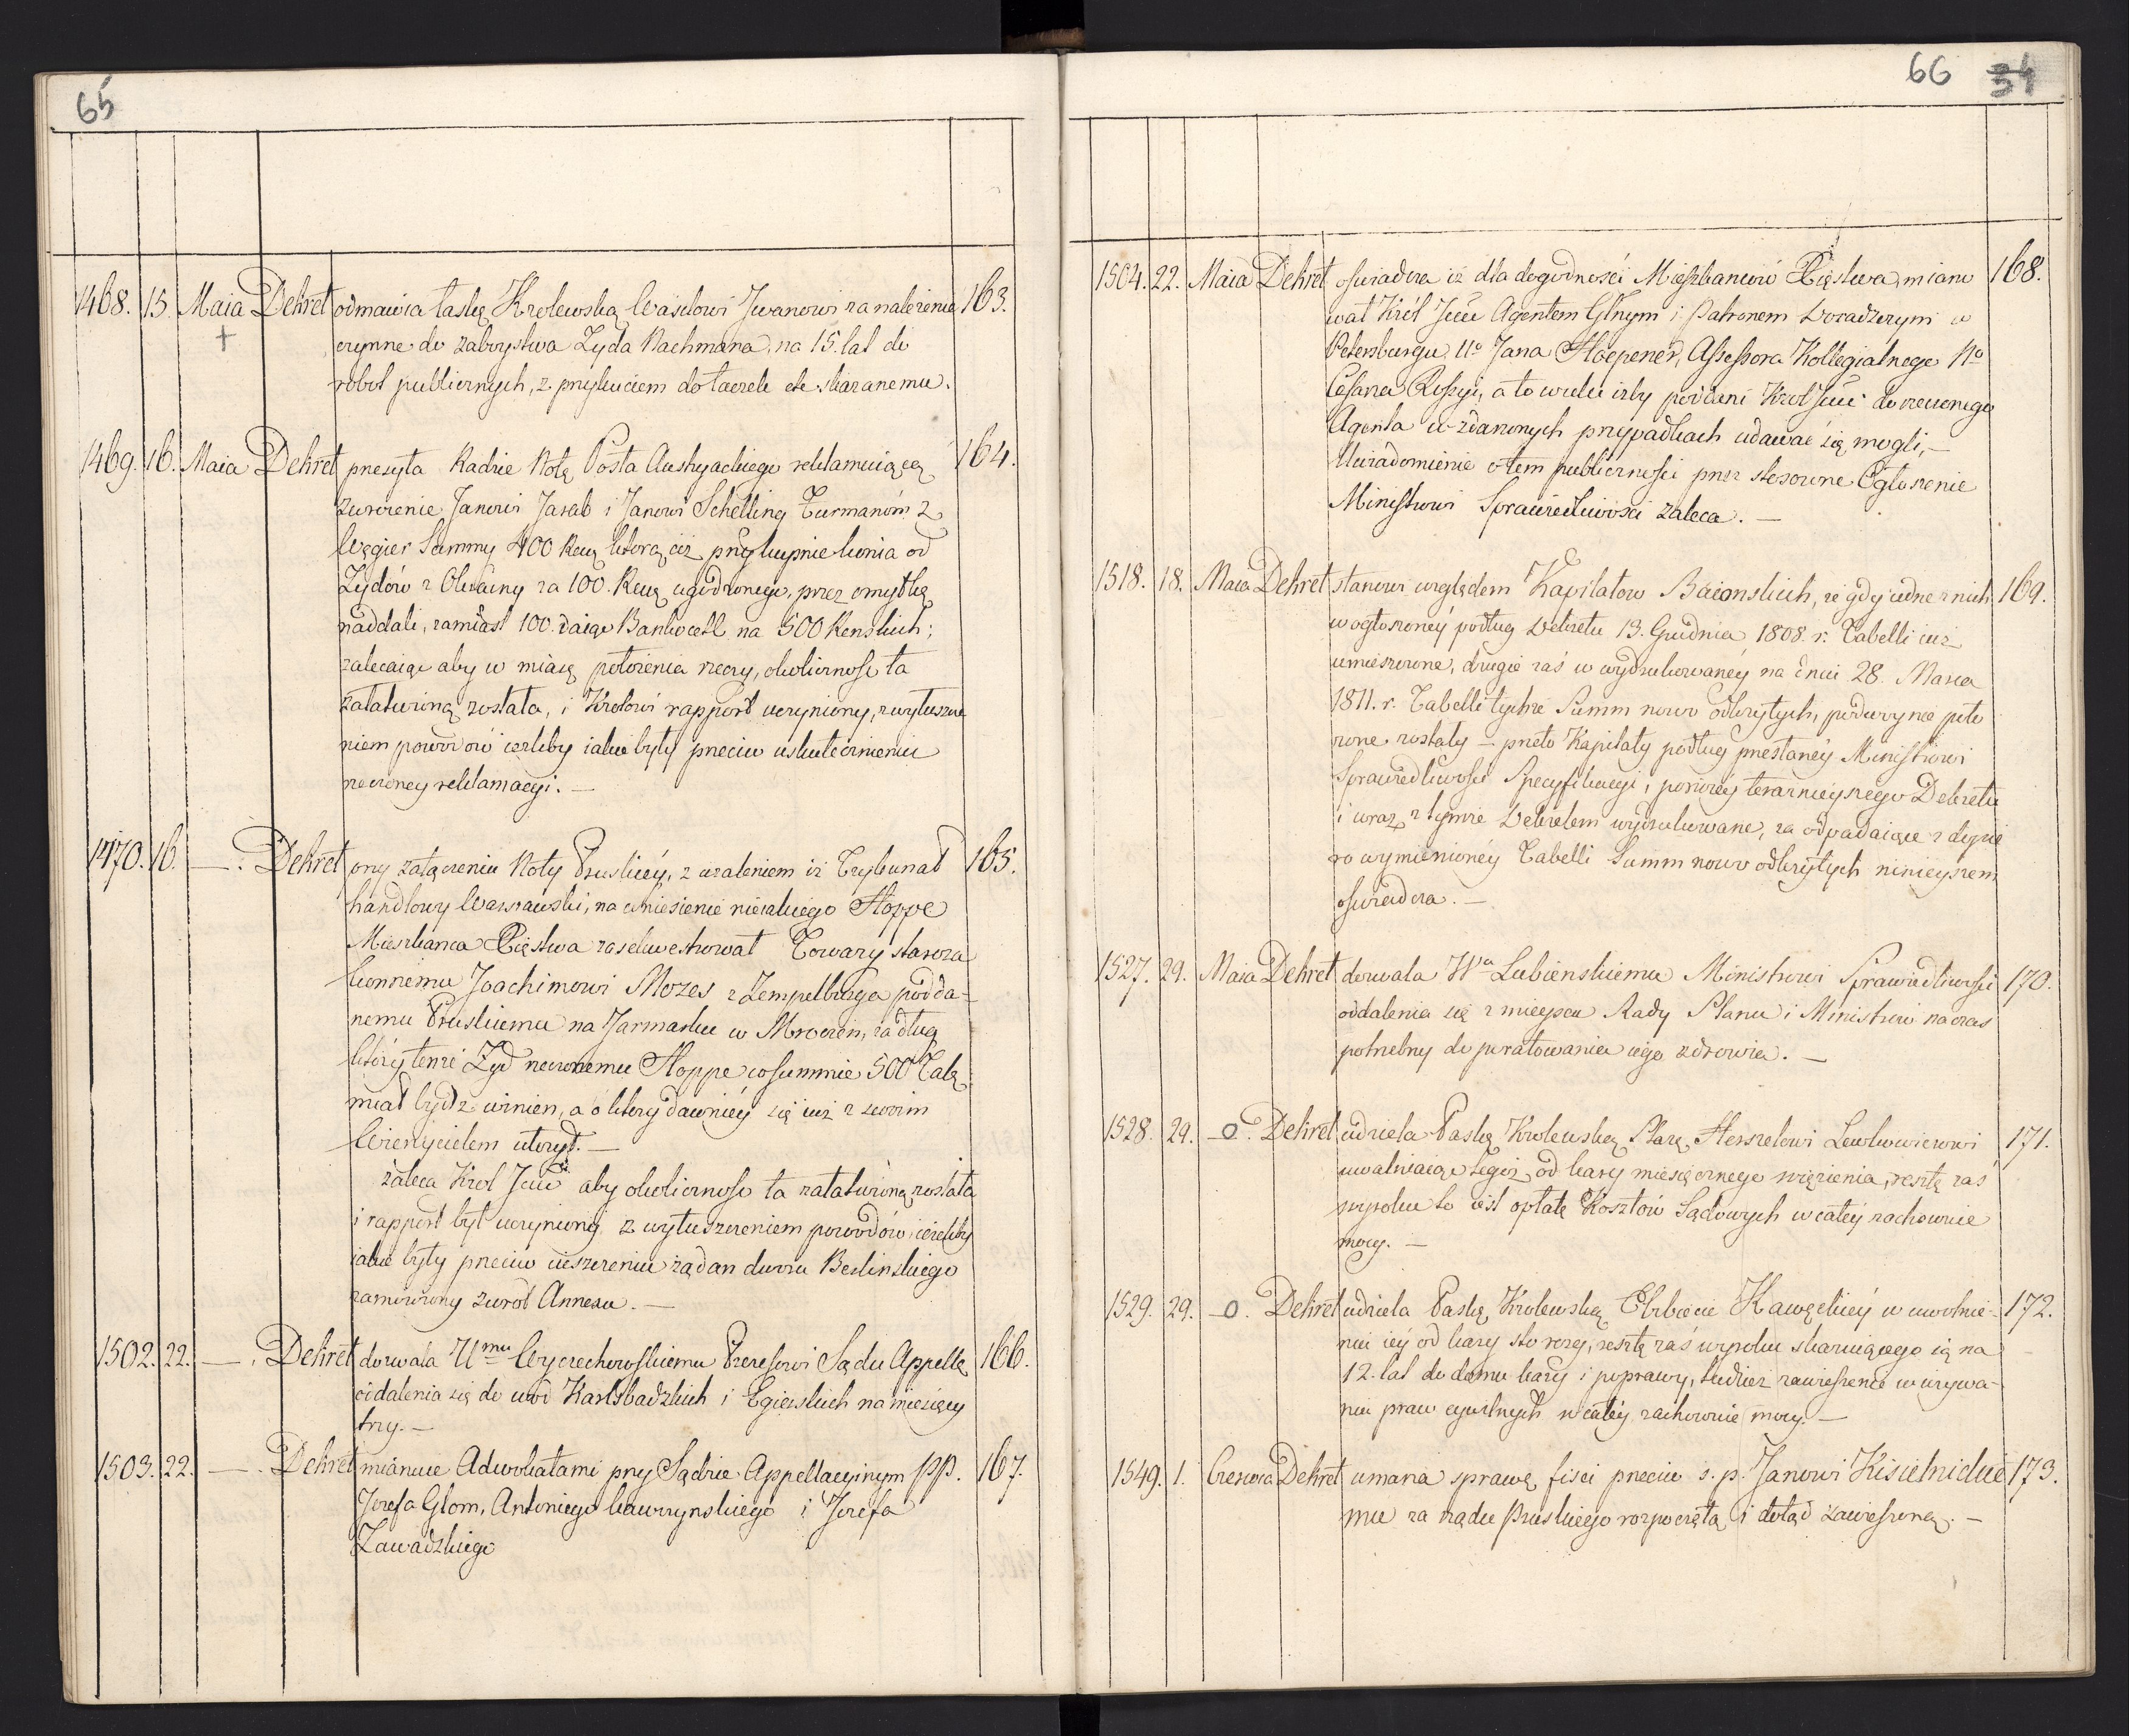 65
1468. 15. Maia Dekret odmawia łaskę Krolewską Wasilowi Jwanowi za należenie 163.
+ czynne do zaboystwa Zyda Nachmana, na 15. lat do
robot publicznych, z przykuciem do taczek etc skazanemu.
1469. 16. Maia Dekret przesyła Radzie Notę Posła Austryackiego reklamuiącą 164.
zwrocenie Janowi Jarab i Janowi Schelling Furmanóm z
Węgier Summy 400 Reńs którą iż przy kupnie konia od
Zydów z Olkainy za 100. Reńs ugodzonego, przez omyłkę
naddali, zamiast 100. daiąc Bankocetl na 500 Renskich;
zalecaiąc aby w miarę położenia rzeczy, okoliczność ta
załatwioną została, i Krolowi rapport uczyniony, z wyłuszcze
niem powodow ieżeliby iakie były przeciw uskutecznieniu
rzeczoney reklamacyi. —
1470. 16. — . Dekret przy załączeniu Noty Pruskiéy, z użaleniem iż Trybunał 165.
handlowy Warszawski, na wniesienie nieiakiego Hoppe
Mieszkanca Xięstwa zasekwestrował Towary starozà
konnemu Joachimowi Mozes z Zempelburga podda-
nemu Pruskiemu na Jarmarku w Mroczen, za dług
który tenże Zyd rzeczonemu Hoppe w summie 500 Tal.
miał bydź winien, a o który dawniéy się iuż z swoim
Wierzycielem ułożył. —
zaleca Krol Jmć aby okoliczność ta załatwioną została
i rapport był uczyniony z wyłuszczeniem powodów, ieżeliby
iakie były przeciw uiszczeniu żądan dworu Berlinskiego
zamówiony zwrot Annexu. —
1502. 22. — . Dekret dozwala Umu Wyczechowskiemu Prezesowi Sądu Appella 166.
oddalenia się do wód Karlsbadzkich i Egierskich na miesięcy
trzy. —
1503. 22. — . Dekret mianuie Adwokatami przy Sądzie Appellacyinym PP. 167.
Jozefa Glom, Antoniego Wawrzynskiego i Jozefa
Zawadzkiego
66 34
1504. 22. Maia Dekret oswiadcza iż dla dogodności Mieszkancow Xięstwa, miano 168.
wał Król Jmć Agentem Głnym i Patronem Doradczym w
Petersburgu, Uo Jana Hoepener, Assessora Kollegialnego No
Cesarza Rossyi, a to w celu iżby poddani Krol Jmć do rzeczonego
Agenta w zdarzonych przypadkach udawać się mogli, —
Uwiadomienie o tem publiczności przez stosowne Ogłoszenie
Ministrowi Sprawiedliwości zaleca. —
1518. 18. Maia Dekret stanowi względem Kapitałow Baiońskich, że gdy iedne z nich 169.
w ogłoszonéy podług Dekretu 13. Grudnia 1808. r. Tabelli iuż
umieszczone, drugie zaś w wydrukowanéy na dniu 28. Marca
1811. r. Tabelli tychże Summ nowo odkrytych, podwoynie poło
żone zostały — przeto Kapitały podług przesłanéy Ministrowi
Sprawiedliwości Specyfikacyi, poniżéy teraznieyszego Dekretu
i wraz z tymże Dekretem wydrukowane, za odpadaiące z dopie
ro wymienionéy Tabelli Summ nowo odkrytych ninieyszem
oswiadcza. —
1527. 29. Maia Dekret dozwala Wu Lubienskiemu Ministrowi Sprawiedliwości 170.
oddalenia się z mieysca Rady Stanu i Ministrów na czas
potrzebny do poratowania iego zdrowia. —
1528. 29. — o . Dekret udziela Łaskę Krolewską Star. Herszelowi Lewkowiczowi 171.
uwalniaiąc tegoż od kary miesięcznego więzienia, resztę zaś
wyroku to iest opłatę Kosztów Sądowych w całey zachowuie
mocy. —
1529. 29. — o . Dekret udziela Łaskę Krolewską Elżbiecie Kawęckiéy w uwolnie- 172.
niu iéy od kary sto rozeg, resztę zaś wyroku skazuiącego ią na
12. lat do domu kary i poprawy, tudzież zawieszenie w używa-
niu praw cywilnych w całéy zachowuie mocy. —
1549. 1. Czerwca Dekret umarza sprawę fisci przeciw ś. p. Janowi Kisielnickie 173.
mu za rządu Pruskiego rozpoczętą i dotąd zawieszoną. —